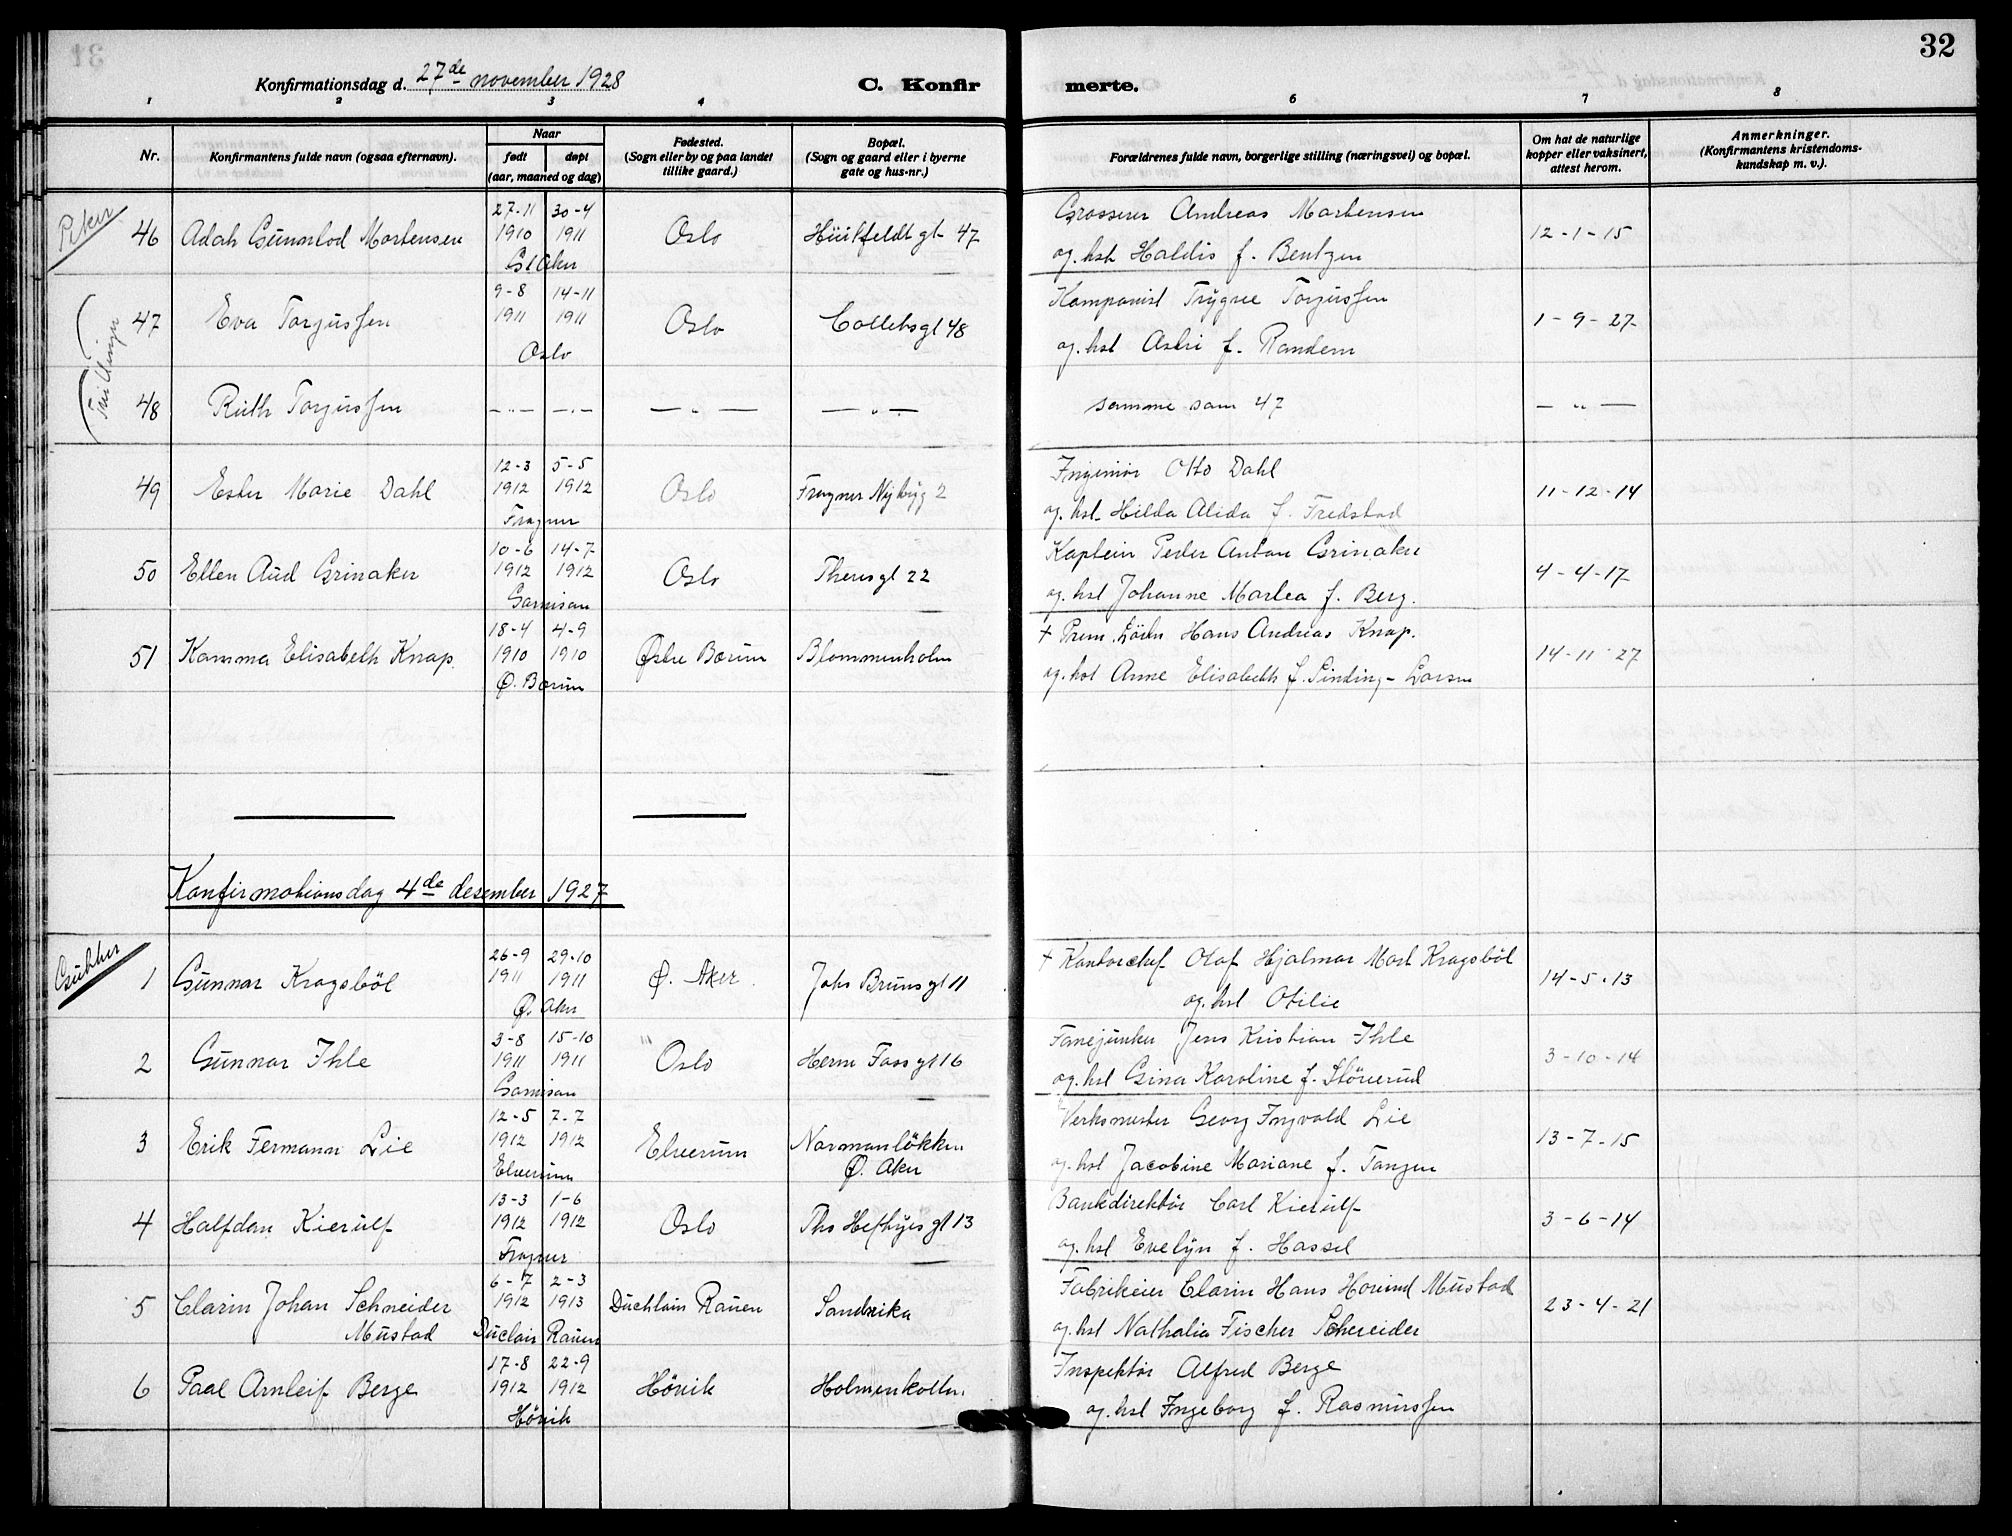 32
Konfirmationsdag d. 27de november 1928
C. Konfir merte.
1 2 3 4 6 7 8
Nr.
Konfirmantens fulde navn (ogsaa efternavn).
Naar
født døpt
(aar, maaned og dag)
Fødested.
(Sogn eller by og paa landet
tillike gaard.)
Bopæl.
(Sogn og gaard eller i byerne
gate og hus-nr.)
Forældrenes fulde navn, borgerlige stilling (næringsvei) og bopæl.
Om hat de naturlige
kopper eller vaksinert,
attest herom.
Anmerkninger.
(Konfirmantens kristendoms-
kundskap m. v.).
Piker
27-11 30-4 Grosserer Andreas Martensen
46 Adah Gunnlod Mortensen 1910 1911 Oslo Hüitfeldtgt 47 12-1-15
Gl Aker og. hst Haldis f. Bentzen
9-8 14-11 Kompanist Trygve Torjussen
47 Eva Torjussen 1911 1911 Oslo Colletsgt 48 1-9-27
Oslo og. hst Astri f. Randem
Trillinger
48 Ruth Torjussen -"- -"- -"- -"- samme som 47 -"-
12-3 5-5 Ingeniør Otto Dahl
49 Ester Marie Dahl 1912 1912 Oslo Frogner Nybyg 2 11-12-14
Frogner og. hst Hilda Alida f. Fredstad
10-6 14-7 Kaptein Peder Anton Grinaker
50 Ellen Aud Grinaker 1912 1912 Oslo Theresgt 22 4-4-17
Garnison og. hst Johanne Marlea f. Berg.
18-4 4-9 + Prem. Löitn Hans Andreas Knap.
51 Kamma Elisabeth Knap. 1910 1910 Østre Bærum Blommenholm 14-11-27
Ø. Bærum og. hst Anne Elisabeth f. Sinding-Larsen
Konfirmationsdag 4de desember 1927
Gutter
26-9 29-10 + Kontorchef Olaf Hjalmar Mart Kragsböl
1 Gunnar Kragsböl 1911 1911 Ø. Aker Johs Brunsgt 11 14-5-13
Ø. Aker og. hst Otilie
3-8 15-10 Fanejunker Jens Kristian Ihle
2 Gunnar Ihle 1911 1911 Oslo Herm Fossgt 16 3-10-14
Garnison og. hst Gina Karoline f. Störerud
12-5 7-7 Verksmester Georg Ingvald Lie
3 Erik Fermann Lie 1912 1912 Elverum Normanlökken 13-7-15
Ø. Aker
Elverum og. hst Jacobine Mariane f. Tangen
13-3 1-6 Bankdirektör Carl Kierulf
4 Halfdan Kierulf 1912 1912 Oslo Ths Heftyesgt 13 3-6-14
Frogner og. hst Evelyn f. Hassel
6-7 2-3 Fabrikeier Clarin Hans Hovind Mustad
5 Clarin Johan Schneider 1912 1913 Duchlain Rauen Sandvika 23-4-21
Mustad Duclair Rauen og. hst Nathalia Fischer Schneider
17-8 22-9 Inspektör Alfred Berge
6 Paal Arnleif Berge 1912 1912 Hövik Holmenkollen
Hövik og. hst Ingeborg f. Rasmussen